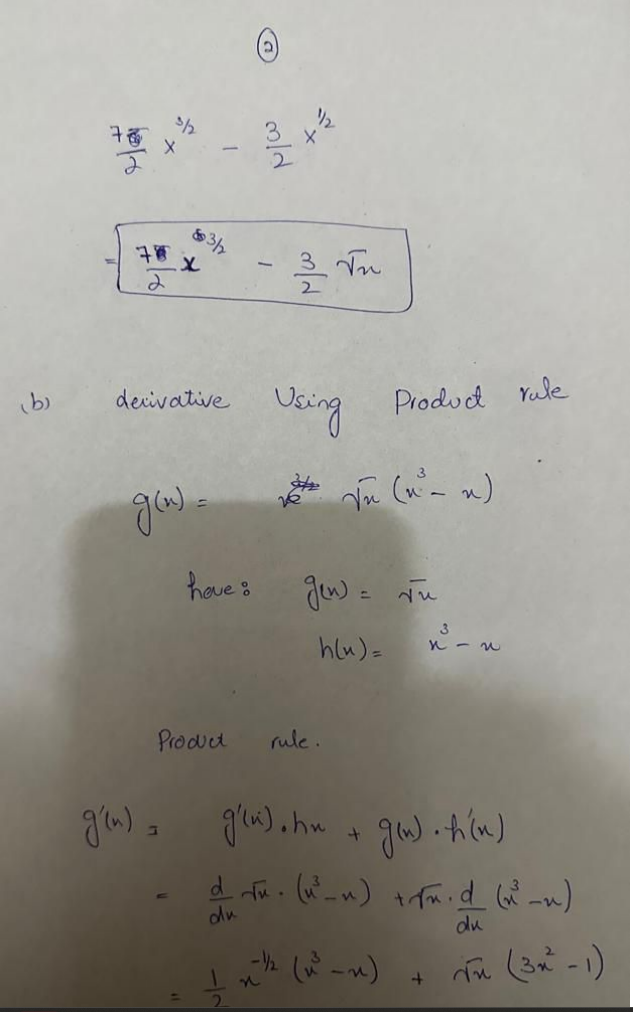 ②
7/2 x^3/2 - 3/2 x^1/2
= 7/2 x^3/2 - 3/2 √x
(b) derivative Using Product rule
g(x) = √x (x³ - x)
have: g(x) = √x
h(x) = x³ - x
Product rule.
g'(x) = g'(x).hx + g(x).h'(x)
= d/dx √x . (x³ - x) + √x . d/dx (x³ - x)
= 1/2 x^-1/2 (x³ - x) + √x (3x² - 1)